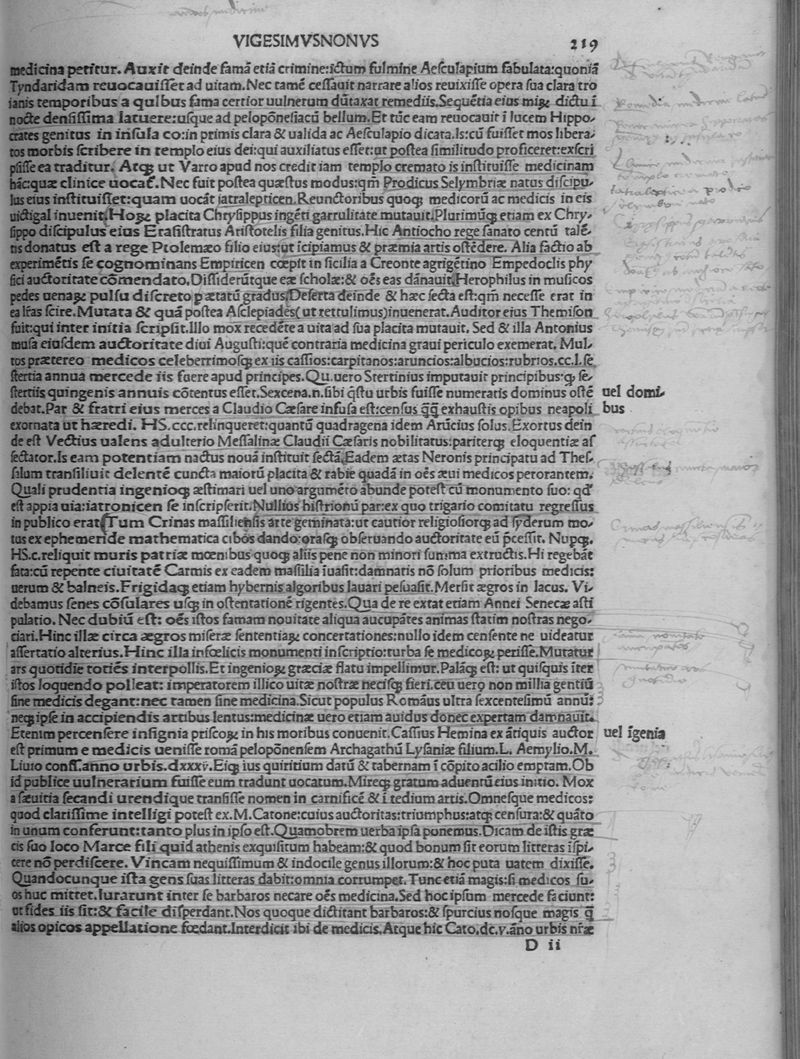 VIGESIMVSNONVS 219
medicina petitur. Auxit deinde famā etiā crimine:ictum fulmine Aesculapium fabulata:quoniā
Tyndaridam reuocauisset ad uitam. Nec tamē cessauit narrare alios reuixisse opera sua clara tro
ianis temporibus a quibus fama certior uulnerum dūtaxat remediis. Sequētia eius miꝝ dictu ī
nocte densissima latuere: usque ad pelopōnesiacū bellum. Et tūc eam reuocauit ī lucem Hippo⸗
crates genitus in insula co: in primis clara & ualida ac Aesculapio dicata. Is: cū fuisset mos libera⸗
tos morbis scribere in templo eius dei: qui auxiliatus esset: ut postea similitudo proficeret: exscri
psisse ea traditur. Atqꝫ ut Varro apud nos credit iam templo cremato is instituisse medicinam
hāc: quæ clinice uocat̄. Nec fuit postea quæstus modus: qm̄ Prodicus Selymbriæ natus discipu⸗
lus eius instituisset: quam uocāt iatralepticen. Reunctoribus quoqꝫ medicorū ac medicis in eis
uectigal inuenit. Hoꝝ placita Chrysippus ingēti garrulitate mutauit. Plurimūqꝫ etiam ex Chry⸗
sippo discipulus eius Erasistratus Aristotelis filia genitus. Hic Antiocho rege sanato centū talē⸗
tis donatus est a rege Ptolemæo filio eius: ut īcipiamus & præmia artis ostēdere. Alia factio ab
experimētis se cognominans Empiricen cœpit in sicilia a Creonte agrigētino Empedoclis phy
sici auctoritate cōmendato. Dissiderūtque eæ scholæ: & oēs eas dānauit. Herophilus in musicos
pedes uenaꝝ pulsu discreto p ætatū gradus. Deserta deinde & hæc secta est: qm̄ necesse erat in
ea lras scire. Mutata & quā postea Asclepiades( ut rettulimus) inuenerat. Auditor eius Themison
fuit: qui inter initia scripsit. Illo mox recedēte a uita ad sua placita mutauit. Sed & illa Antonius
musa eiusdem auctoritate diui Augusti: quē contraria medicina graui periculo exemerat. Mul⸗
tos prætereo medicos celeberrimosqꝫ ex iis cassios: carpitanos: aruncios: albucios: rubrios. cc. l. se
stertia annua mercede iis fuere apud principes. Qu. uero Stertinius imputauit principibus: qꝫ se⸗
stertiis quingenis annuis cōtentus esset. Sexcena. n. sibi q̄stu urbis fuisse numeratis dominus ostē uel domi⸗
debat. Par & fratri eius merces a Claudio Cæsare infusa est: census q̄q̄ exhaustis opibus neapoli bus
exornata ut hæredi. HS. ccc. relinqueret: quantū quadragena idem Arūcius solus. Exortus dein
de est Vectius ualens adulterio Messalinæ Claudii Cæsaris nobilitatus: pariterqꝫ eloquentiæ as
sectator. Is eam potentiam nactus nouā instituit sectā. Eadem ætas Neronis principatu ad Thes⸗
silum transiliuit delentē cuncta maiorū placita & rabie quadā in oēs æui medicos perorantem.
Quali prudentia ingenioqꝫ æstimari uel uno argumēto abunde potest cū monumento suo: qd̄
est appia uia: iatronicen se inscripserit. Nullios histrionū par: ex quo trigario comitatu regressus
in publico erat. Tum Crinas massiliensis arte geminata: ut cautior religiosiorqꝫ ad syderum mo⸗
tus ex ephemeride mathematica cibos dando: orasqꝫ obseruando auctoritate eū p̄cessit. Nupqꝫ.
HS. c. reliquit muris patriæ mœnibus quoqꝫ aliis pene non minori summa extructis. Hi regebāt
fata: cū repente ciuitatē Carmis ex eadem massilia iuasit: damnatis nō solum prioribus medicis:
uerum & balneis. Frigidaqꝫ etiam hybernis algoribus lauari pesuasit. Mersit ægros in lacus. Vi⸗
debamus senes cōsulares usqꝫ in ostentationē rigentes. Qua de re extat etiam Annei Senecæ asti
pulatio. Nec dubiū est: oēs istos famam nouitate aliqua aucupātes animas statim nostras nego⸗
ciari. Hinc illæ circa ægros miseræ sententiaꝝ concertationes: nullo idem censente ne uideatur
assertatio alterius. Hinc illa infœlicis monumenti inscriptio: turba se medicoꝝ perisse. Mutatur
ars quotidie totiēs interpollis. Et ingenioꝝ græciæ flatu impellimur. Palāqꝫ est: ut quisquis īter
istos loquendo polleat: imperatorem illico uitæ nostræ necisqꝫ fieri. ceu uero non millia gentiū
sine medicis degant: nec tamen sine medicina. Sicut populus Romāus ultra sexcentesimū annū:
neqꝫ ipse in accipiendis artibus lentus: medicinæ uero etiam auidus donec expertam damnauit.
Etenim percensere insignia priscoꝝ in his moribus conuenit. Cassius Hemina ex ātiquis auctor uel īgenia
est primum e medicis uenisse romā pelopōnensem Archagathū Lysaniæ filium. L. Aemylio. M.
Liuio conss. anno urbis. dxxxv. Eiqꝫ ius quiritium datū & tabernam ī cōpito acilio emptam. Ob
id publice uulnerarium fuisse eum tradunt uocatum. Mireqꝫ gratum aduentū eius initio. Mox
a sæuitia secandi urendique transisse nomen in carnificē & ī tedium artis. Omnesque medicos:
quod clarissime intelligi potest ex. M. Catone: cuius auctoritas: triumphus: atqꝫ censura: & quāto
in unum conferunt: tanto plus in ipso est. Quamobrem uerba ipsa ponemus. Dicam de istis græ
cis suo loco Marce fili quid athenis exquisitum habeam: & quod bonum sit eorum litteras īspi⸗
cere nō perdiscere. Vincam nequissimum & indocile genus illorum: & hoc puta uatem dixisse.
Quandocunque ista gens suas litteras dabit: omnia corrumpet. Tunc etiā magis: si medicos su⸗
os huc mittet. Iurarunt inter se barbaros necare oēs medicina. Sed hoc ipsum mercede faciunt:
ut fides iis sit: & facile disperdant. Nos quoque dictitant barbaros: & spurcius nosque magis q̄
alios opicos appellatione fœdant. Interdicit ibi de medicis. Atque hic Cato. dc. v. āno urbis nr̄æ
D ii